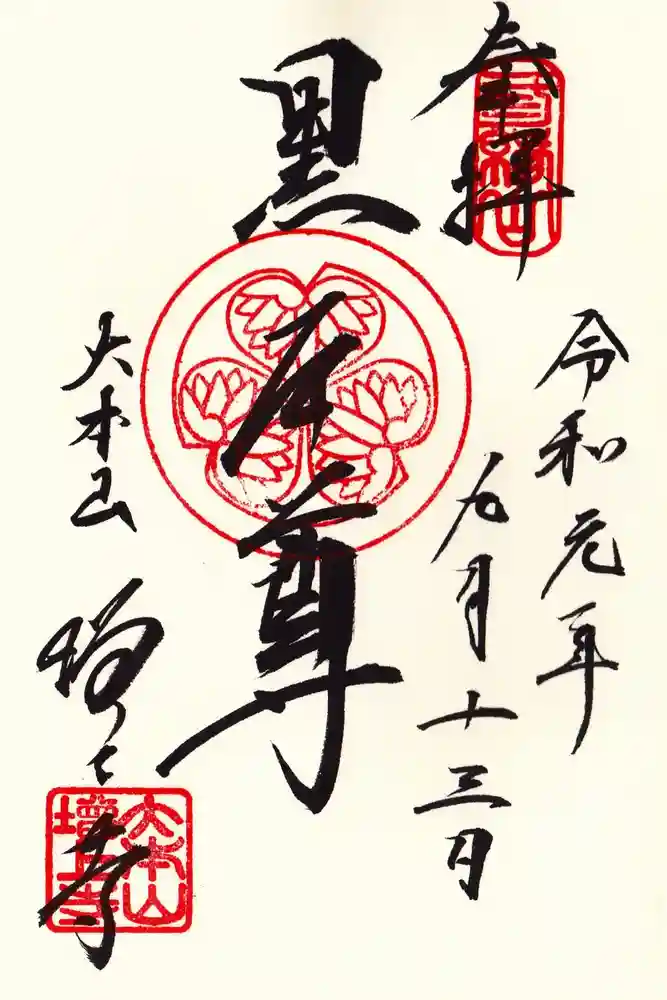 奉拝
令和元年
九月十三日
黒本尊
大本山
増上寺
大本山
增上寺